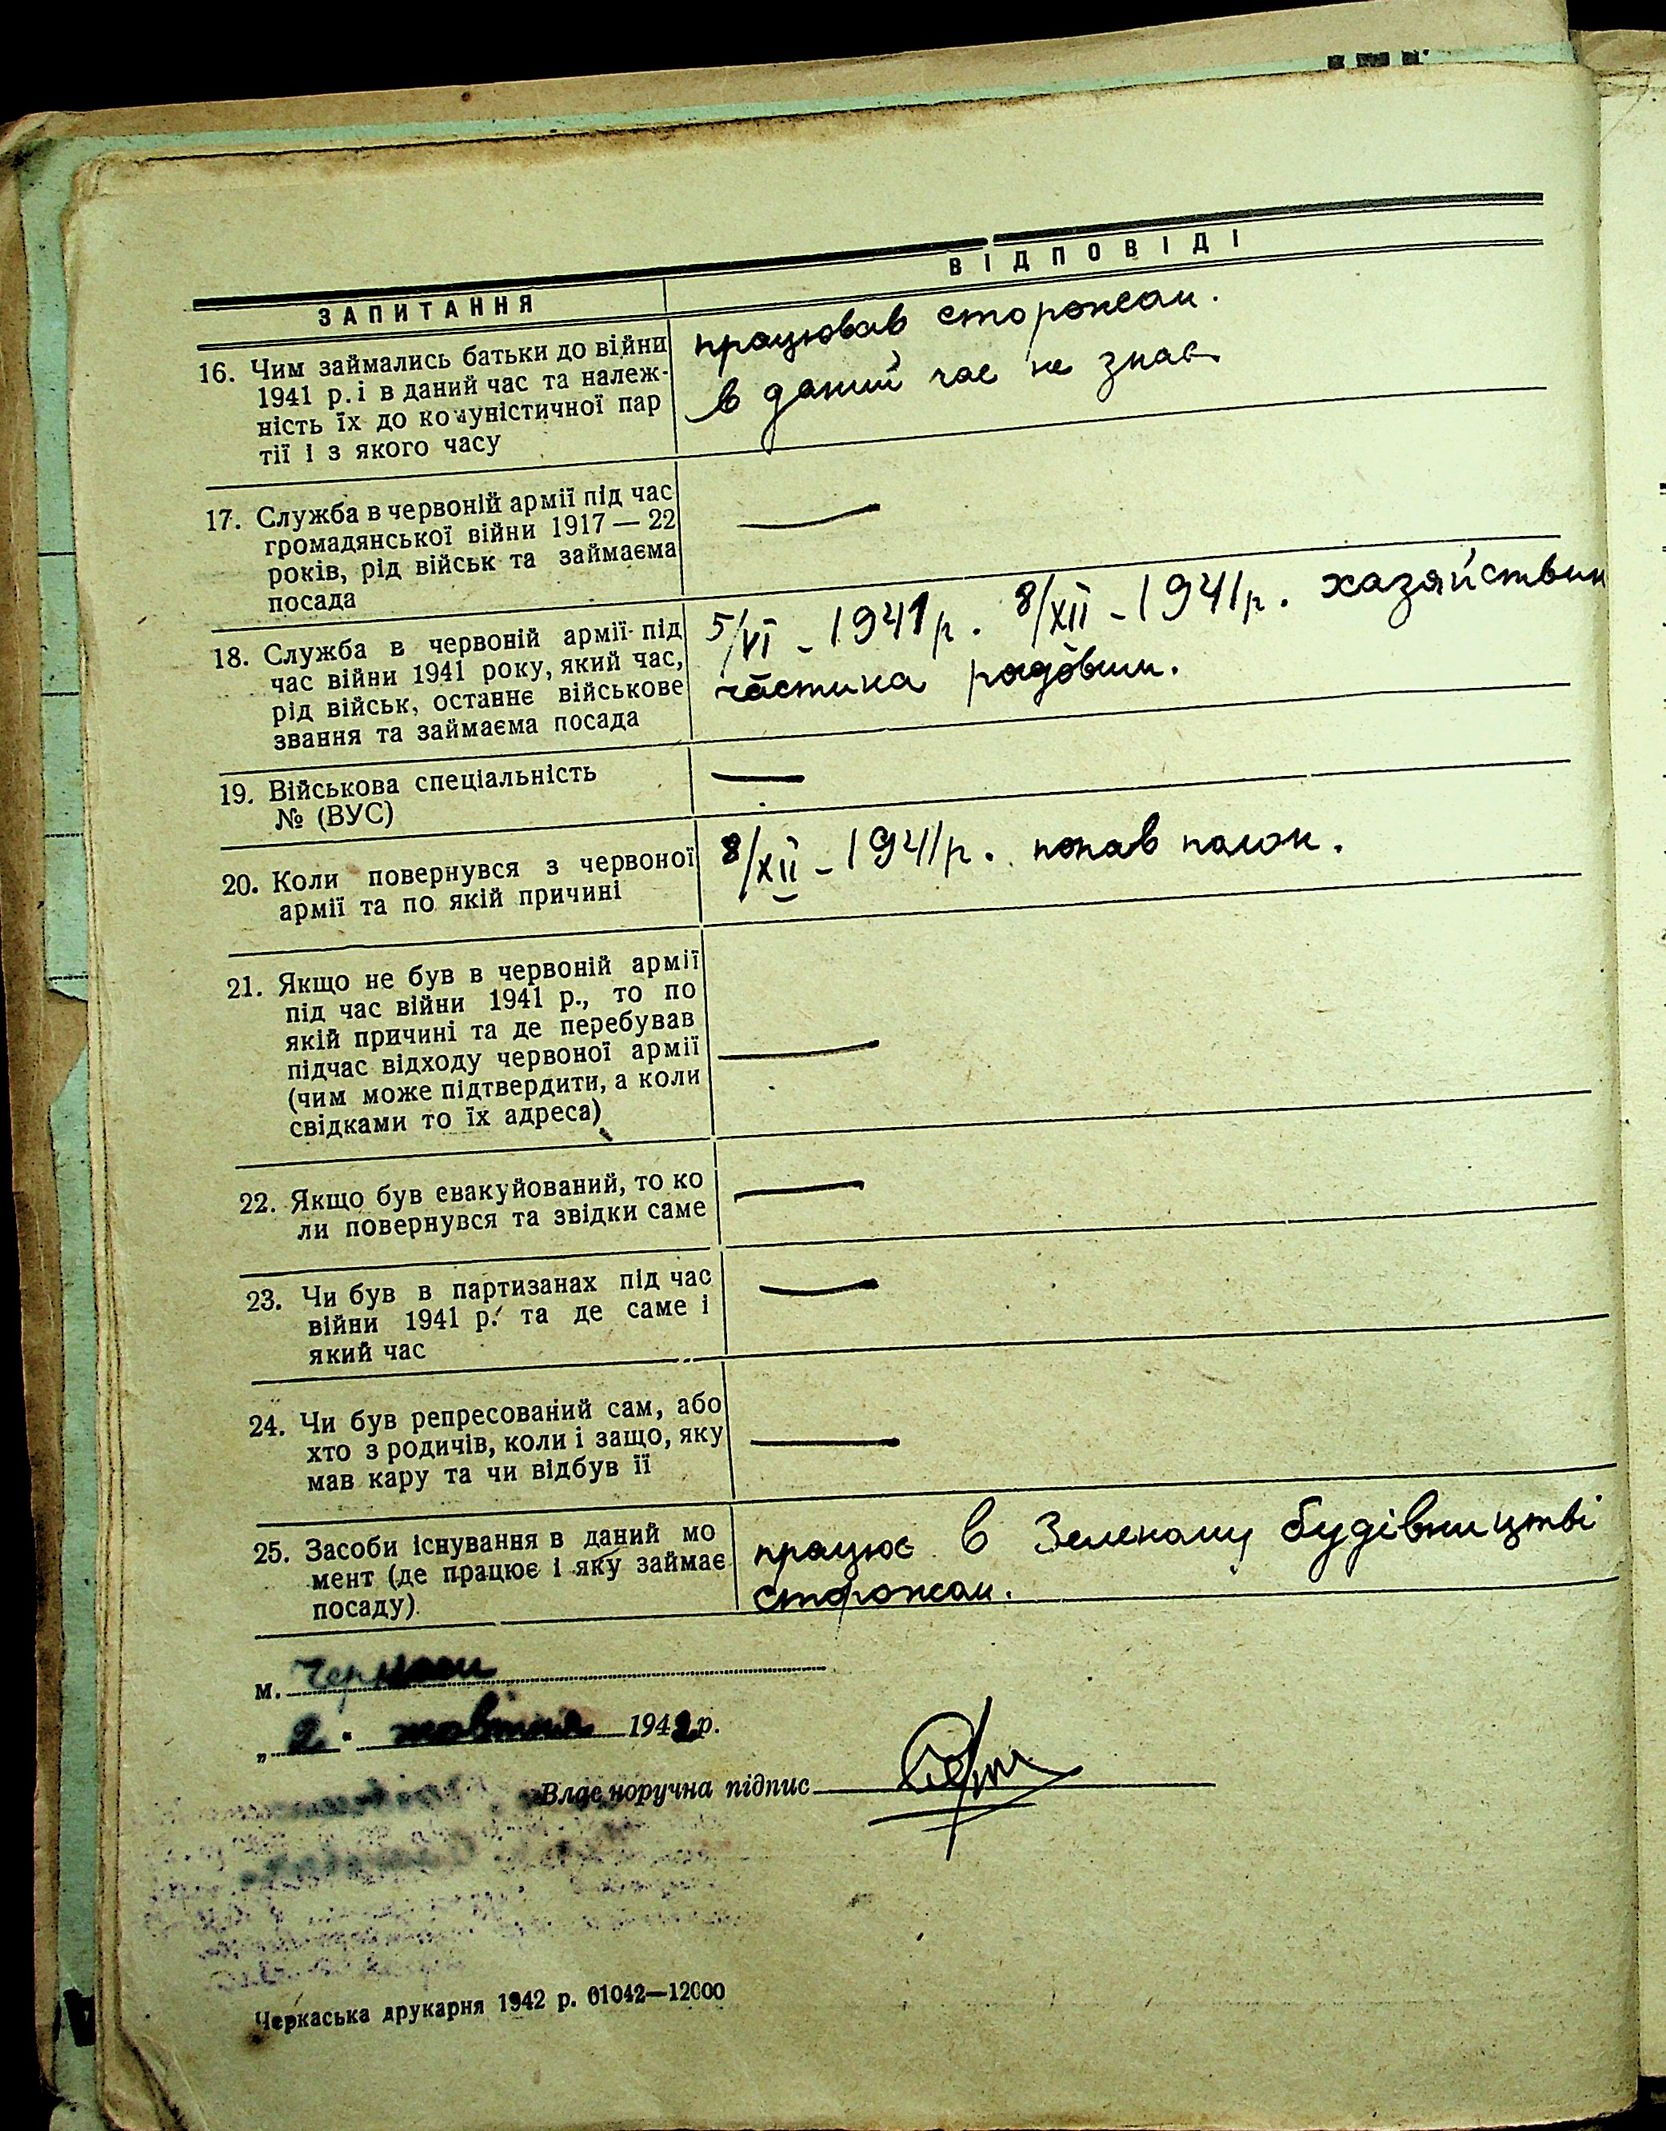 ЗАПИТАННЯ
ВІДПОВІДІ
16. Чим займались батьки до війни
1941 р. і в даний час та належ-
ність їх до комуністичної пар
тії і з якого часу
працював сторожем.
в даний час не знає
17. Служба в червоній армії під час
громадянської війни 1917 — 22
років, рід військ та займаєма
посада
—
18. Служба в червоній армії під
час війни 1941 року, який час,
рід військ, останнє військове
звання та займаєма посада
5/VI - 1941 р. 8/XII - 1941 р. хазяйствин
частина рядовим.
19. Військова спеціальність
№ (ВУС)
—
20. Коли повернувся з червоної
армії та по якій причині
8/XII - 1941 р. попав полон.
21. Якщо не був в червоній армії
під час війни 1941 р., то по
якій причині та де перебував
підчас відходу червоної армії
(чим може підтвердити, а коли
свідками то їх адреса)
—
22. Якщо був евакуйований, то ко
ли повернувся та звідки саме
—
23. Чи був в партизанах під час
війни 1941 р. та де саме і
який час
—
24. Чи був репресований сам, або
хто з родичів, коли і защо, яку
мав кару та чи відбув її
—
25. Засоби існування в даний мо
мент (де працює і яку займає
посаду).
працює в Зеленому будівництві
сторожем.
м. Черкаси
„ 2 " жовтня 1942 р.
Власноручна підпис
Черкаська друкарня 1942 р. 01042—12000